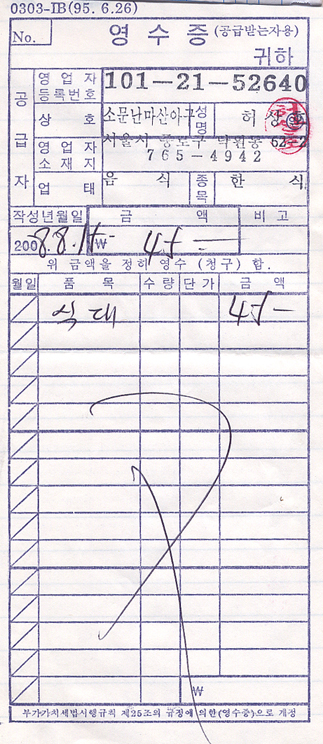 0303-IB(95.6.26)
No. 영 수 증 (공급받는자용)
귀하
공급자
영업자 등록번호 101-21-52640
상 호 소문난마산아구 성명 허
영업자 소재지 서울시 종로구 낙원동
765-4942
업 태 음 식 종목 한 식
작성년월일 금 액 비 고
2008.8. ₩
위 금액을 정히 영수 (청구) 함.
월일 품 목 수량 단가 금 액
식대
₩
부가가치세법시행규칙 제25조의 규정에 의한(영수증)으로 개정